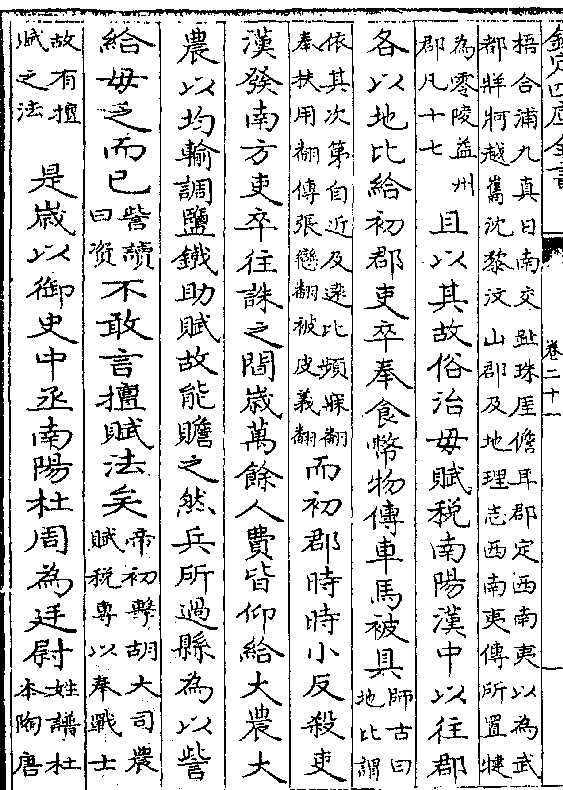 欽定四庫全書 卷二十一
梧合浦九真日南交趾珠厓儋耳郡定西南夷以為武
都牂牁越嶲沈黎汶山郡及地理志西南夷傳所置犍
為零陵益州
郡凡十七
且以其故俗治毋賦稅南陽漢中以往郡
各以地比給初郡吏卒奉食幣物傳車馬被具
師古曰
地比謂
依其次第自近及遠比頻寐翻
奉扶用翻傳張戀翻被皮義翻
而初郡時時小反殺吏
漢發南方吏卒往誅之間歲萬餘人費皆仰給大農大
農以均輸調鹽鐵助賦故能贍之然兵所過縣為以訾
給毋乏而已
訾讀
曰資
不敢言擅賦法矣
帝初擊胡大司農
賦稅專以奉戰士
故有擅
賦之法
是歲以御史中丞南陽杜周為廷尉
姓譜杜
本陶唐